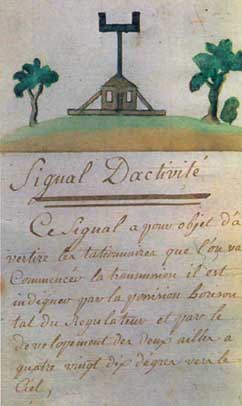 Signal Dactivité
Ce Signal a pour objet d'a
vertire les tationnaires que l'on va
Commencer la transmision il est
indequer par la position horison
tal du Regulateur et par le
developement des deux ailles a
quatre vingt dix degres vers le
Ciel,